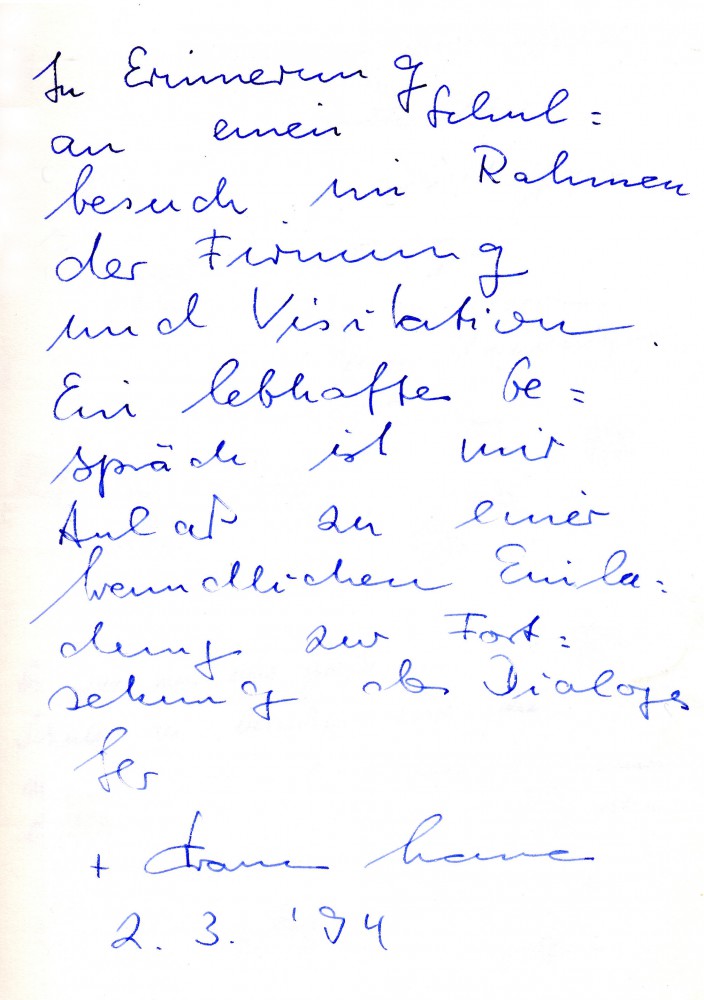 In Erinnerung
an einen Schul=
besuch im Rahmen
der Firmung
und Visitation.
Ein lebhaftes Ge=
spräch ist mir
Anlaß zu einer
freundlichen Einla=
dung zur Fort=
setzung des Dialoges
Ihr
+
2. 3. '94